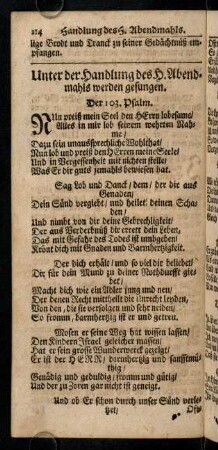 214 Handlung des H. Abendmahls.
lige Brodt und Tranck zu seiner Gedächtnüß em-
pfangen.
Unter der Handlung des H. Abend-
mahls werden gesungen.
Der 103. Psalm.
NUn preiß mein Seel den HErrn lobesame/
Alles in mir lob seinem wehrten Nah-
me/
Dazu sein unaussprechliche Wohlthat/
Nun lob und preiß den HErren meine Seele/
Und in Vergessenheit mit nichten stelle/
Was Er dir guts jemahls bewiesen hat.
Sag Lob und Danck/ dem/ der dir aus
Genaden/
Dein Sünd vergiebt/ und heilet deinen Scha-
den/
Und nimbt von dir deine Gebrechligkeit/
Der aus Verderbnüß dir errett dein Leben,
Das mit Gefahr des Todes ist umbgeben/
Krönt dich mit Gnaden und Barmhertzigkeit.
Der dich erhält/ und so viel dir beliebet/
Dir für dein Mund zu deiner Nothdurfft gie-
bet/
Macht dich wie ein Adler jung und neu/
Der denen Recht mittheilt die Unrecht leyden,
Von den, die sie verfolgen und sehr neiden,
So fromm, barmhertzig ist er und getreu.
Mosen er seine Weg hat wissen lassen/
Den Kindern Israel geleicher massen/
Hat er sein grosse Wunderwerck gezeigt/
Er ist der HERR/ barmhertzig und sanfftmü-
thig/
Genädig und geduldig/ fromm und gütig/
Und der zu Zorn gar nicht ist geneigt.
Und ob Er schon durch unser Sünd verle-
tzet/